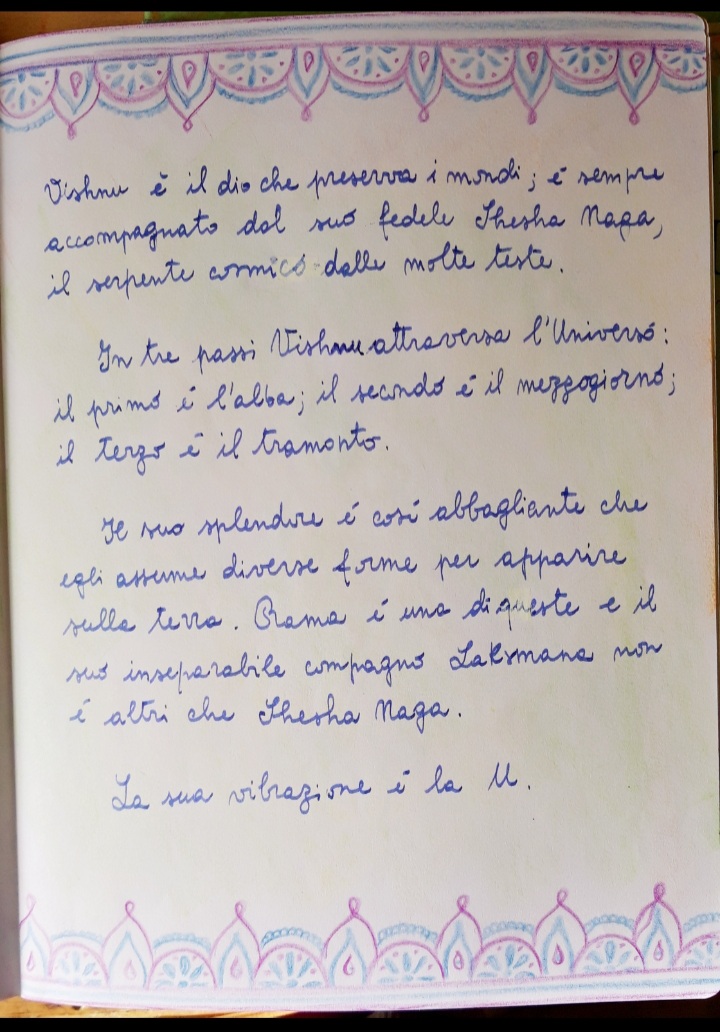 Vishnu è il dio che preserva i mondi; è sempre
accompagnato dal suo fedele Shesha Naga,
il serpente cosmico dalle molte teste.
In tre passi Vishnu attraversa l'Universo:
il primo è l'alba; il secondo è il mezzogiorno;
il terzo è il tramonto.
Il suo splendore é così abbagliante che
egli assume diverse forme per apparire
sulla terra. Rama è una di queste e il
suo inseparabile compagno Laksmana non
è altri che Shesha Naga.
La sua vibrazione è la U.